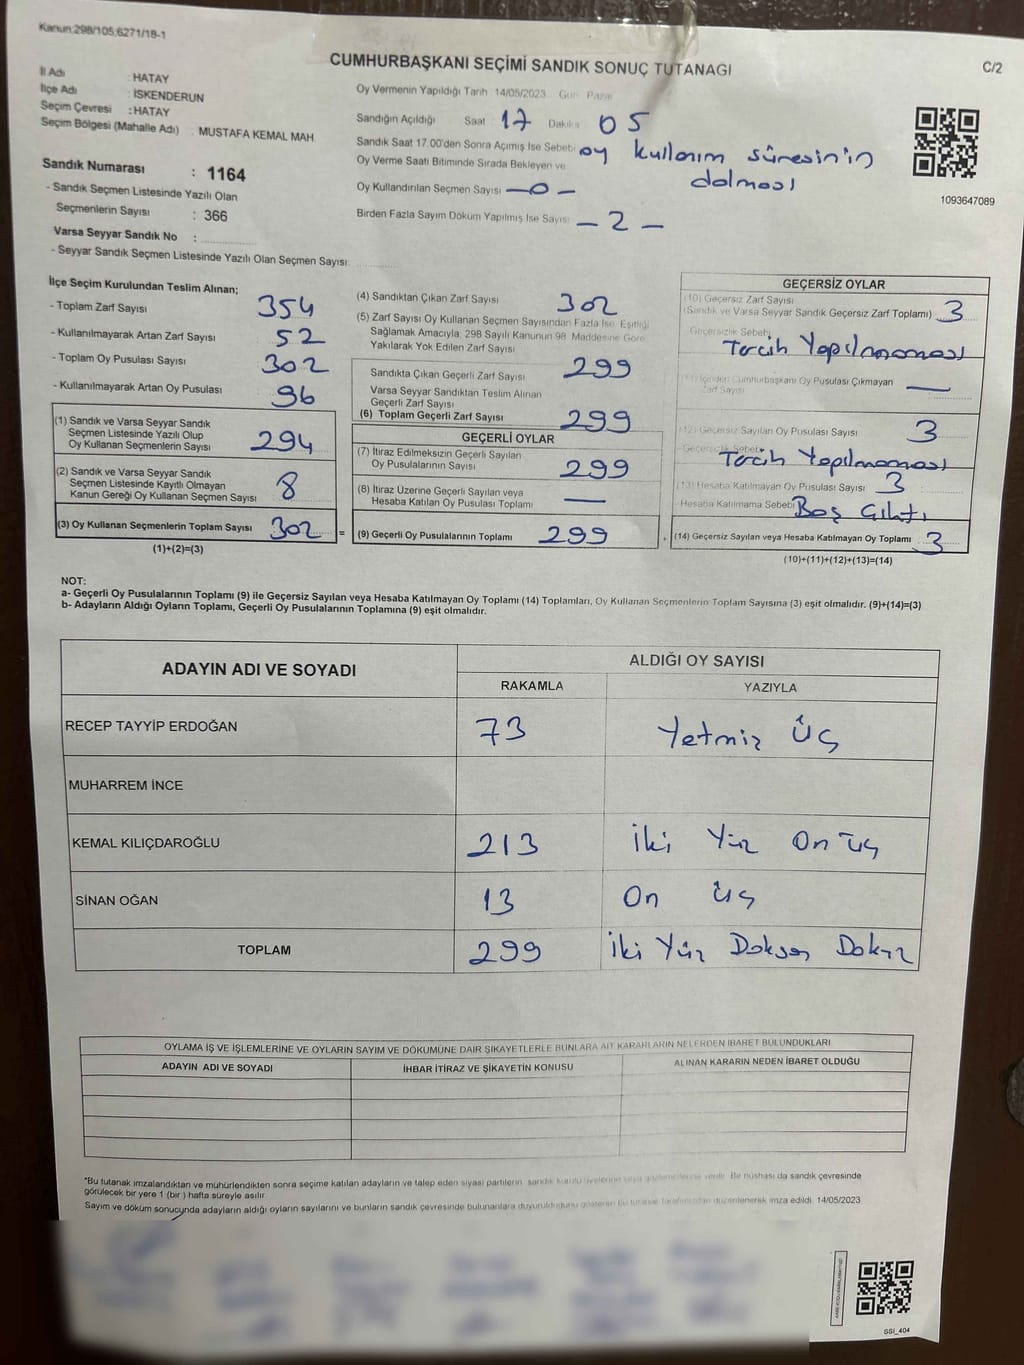 Kanun:298/105,6271/18-1
CUMHURBAŞKANI SEÇİMİ SANDIK SONUÇ TUTANAĞI
C/2
İl Adı : HATAY
İlçe Adı : İSKENDERUN
Seçim Çevresi : HATAY
Seçim Bölgesi (Mahalle Adı) : MUSTAFA KEMAL MAH.
Sandık Numarası : 1164
- Sandık Seçmen Listesinde Yazılı Olan
Seçmenlerin Sayısı : 366
Varsa Seyyar Sandık No :
- Seyyar Sandık Seçmen Listesinde Yazılı Olan Seçmen Sayısı:
Oy Vermenin Yapıldığı Tarih 14/05/2023 Gün Pazar
Sandığın Açıldığı Saat 17 Dakika 05
Sandık Saat 17.00'den Sonra Açılmış İse Sebebi oy kullanım süresinin
dolması
Oy Verme Saati Bitiminde Sırada Bekleyen ve
Oy Kullandırılan Seçmen Sayısı - 0 -
Birden Fazla Sayım Döküm Yapılmış İse Sayısı - 2 -
1093647089
İlçe Seçim Kurulundan Teslim Alınan;
- Toplam Zarf Sayısı 354
- Kullanılmayarak Artan Zarf Sayısı 52
- Toplam Oy Pusulası Sayısı 302
- Kullanılmayarak Artan Oy Pusulası 96
(1) Sandık ve Varsa Seyyar Sandık
Seçmen Listesinde Yazılı Olup
Oy Kullanan Seçmenlerin Sayısı 294
(2) Sandık ve Varsa Seyyar Sandık
Seçmen Listesinde Kayıtlı Olmayan
Kanun Gereği Oy Kullanan Seçmen Sayısı 8
(3) Oy Kullanan Seçmenlerin Toplam Sayısı 302 =
(1)+(2)=(3)
(4) Sandıktan Çıkan Zarf Sayısı 302
(5) Zarf Sayısı Oy Kullanan Seçmen Sayısından Fazla İse, Eşitliği
Sağlamak Amacıyla; 298 Sayılı Kanunun 98. Maddesine Göre
Yakılarak Yok Edilen Zarf Sayısı
Sandıkta Çıkan Geçerli Zarf Sayısı 299
Varsa Seyyar Sandıktan Teslim Alınan
Geçerli Zarf Sayısı
(6) Toplam Geçerli Zarf Sayısı 299
GEÇERLİ OYLAR
(7) İtiraz Edilmeksizin Geçerli Sayılan
Oy Pusulalarının Sayısı 299
(8) İtiraz Üzerine Geçerli Sayılan veya
Hesaba Katılan Oy Pusulaları Toplamı —
(9) Geçerli Oy Pusulalarının Toplamı 299
GEÇERSİZ OYLAR
(10) Geçersiz Zarf Sayısı
(Sandık ve Varsa Seyyar Sandık Geçersiz Zarf Toplamı) 3
Geçersizlik Sebebi
Tercih Yapılmaması
(11) İçinden Cumhurbaşkanı Oy Pusulası Çıkmayan
Zarf Sayısı —
(12) Geçersiz Sayılan Oy Pusulası Sayısı 3
Geçersizlik Sebebi
Tercih Yapılmaması
(13) Hesaba Katılmayan Oy Pusulası Sayısı 3
Hesaba Katılmama Sebebi Boş Çıktı
(14) Geçersiz Sayılan veya Hesaba Katılmayan Oy Toplamı 3
(10)+(11)+(12)+(13)=(14)
NOT:
a- Geçerli Oy Pusulalarının Toplamı (9) ile Geçersiz Sayılan veya Hesaba Katılmayan Oy Toplamı (14) Toplamları, Oy Kullanan Seçmenlerin Toplam Sayısına (3) eşit olmalıdır. (9)+(14)=(3)
b- Adayların Aldığı Oyların Toplamı, Geçerli Oy Pusulalarının Toplamına (9) eşit olmalıdır.
ADAYIN ADI VE SOYADI
ALDIĞI OY SAYISI
RAKAMLA YAZIYLA
RECEP TAYYİP ERDOĞAN 73 Yetmiş Üç
MUHARREM İNCE
KEMAL KILIÇDAROĞLU 213 İki Yüz On Üç
SİNAN OĞAN 13 On Üç
TOPLAM 299 İki Yüz Doksan Dokuz
OYLAMA İŞ VE İŞLEMLERİNE VE OYLARIN SAYIM VE DÖKÜMÜNE DAİR ŞİKAYETLERLE BUNLARA AİT KARARLARIN NELERDEN İBARET BULUNDUKLARI
ADAYIN ADI VE SOYADI İHBAR İTİRAZ VE ŞİKAYETİN KONUSU ALINAN KARARIN NEDEN İBARET OLDUĞU
*Bu tutanak imzalandıktan ve mühürlendikten sonra seçime katılan adayların ve talep eden siyasi partilerin, sandık kurulu üyelerine veya gözlemcilerine verilir. Bir nüshası da sandık çevresinde
görülecek bir yere 1 (bir) hafta süreyle asılır.
Sayım ve döküm sonucunda adayların aldığı oyların sayılarını ve bunların sandık çevresinde bulunanlara duyurulduğunu gösteren bu tutanak tarafımızdan düzenlenerek imza edildi. 14/05/2023
SSI_404